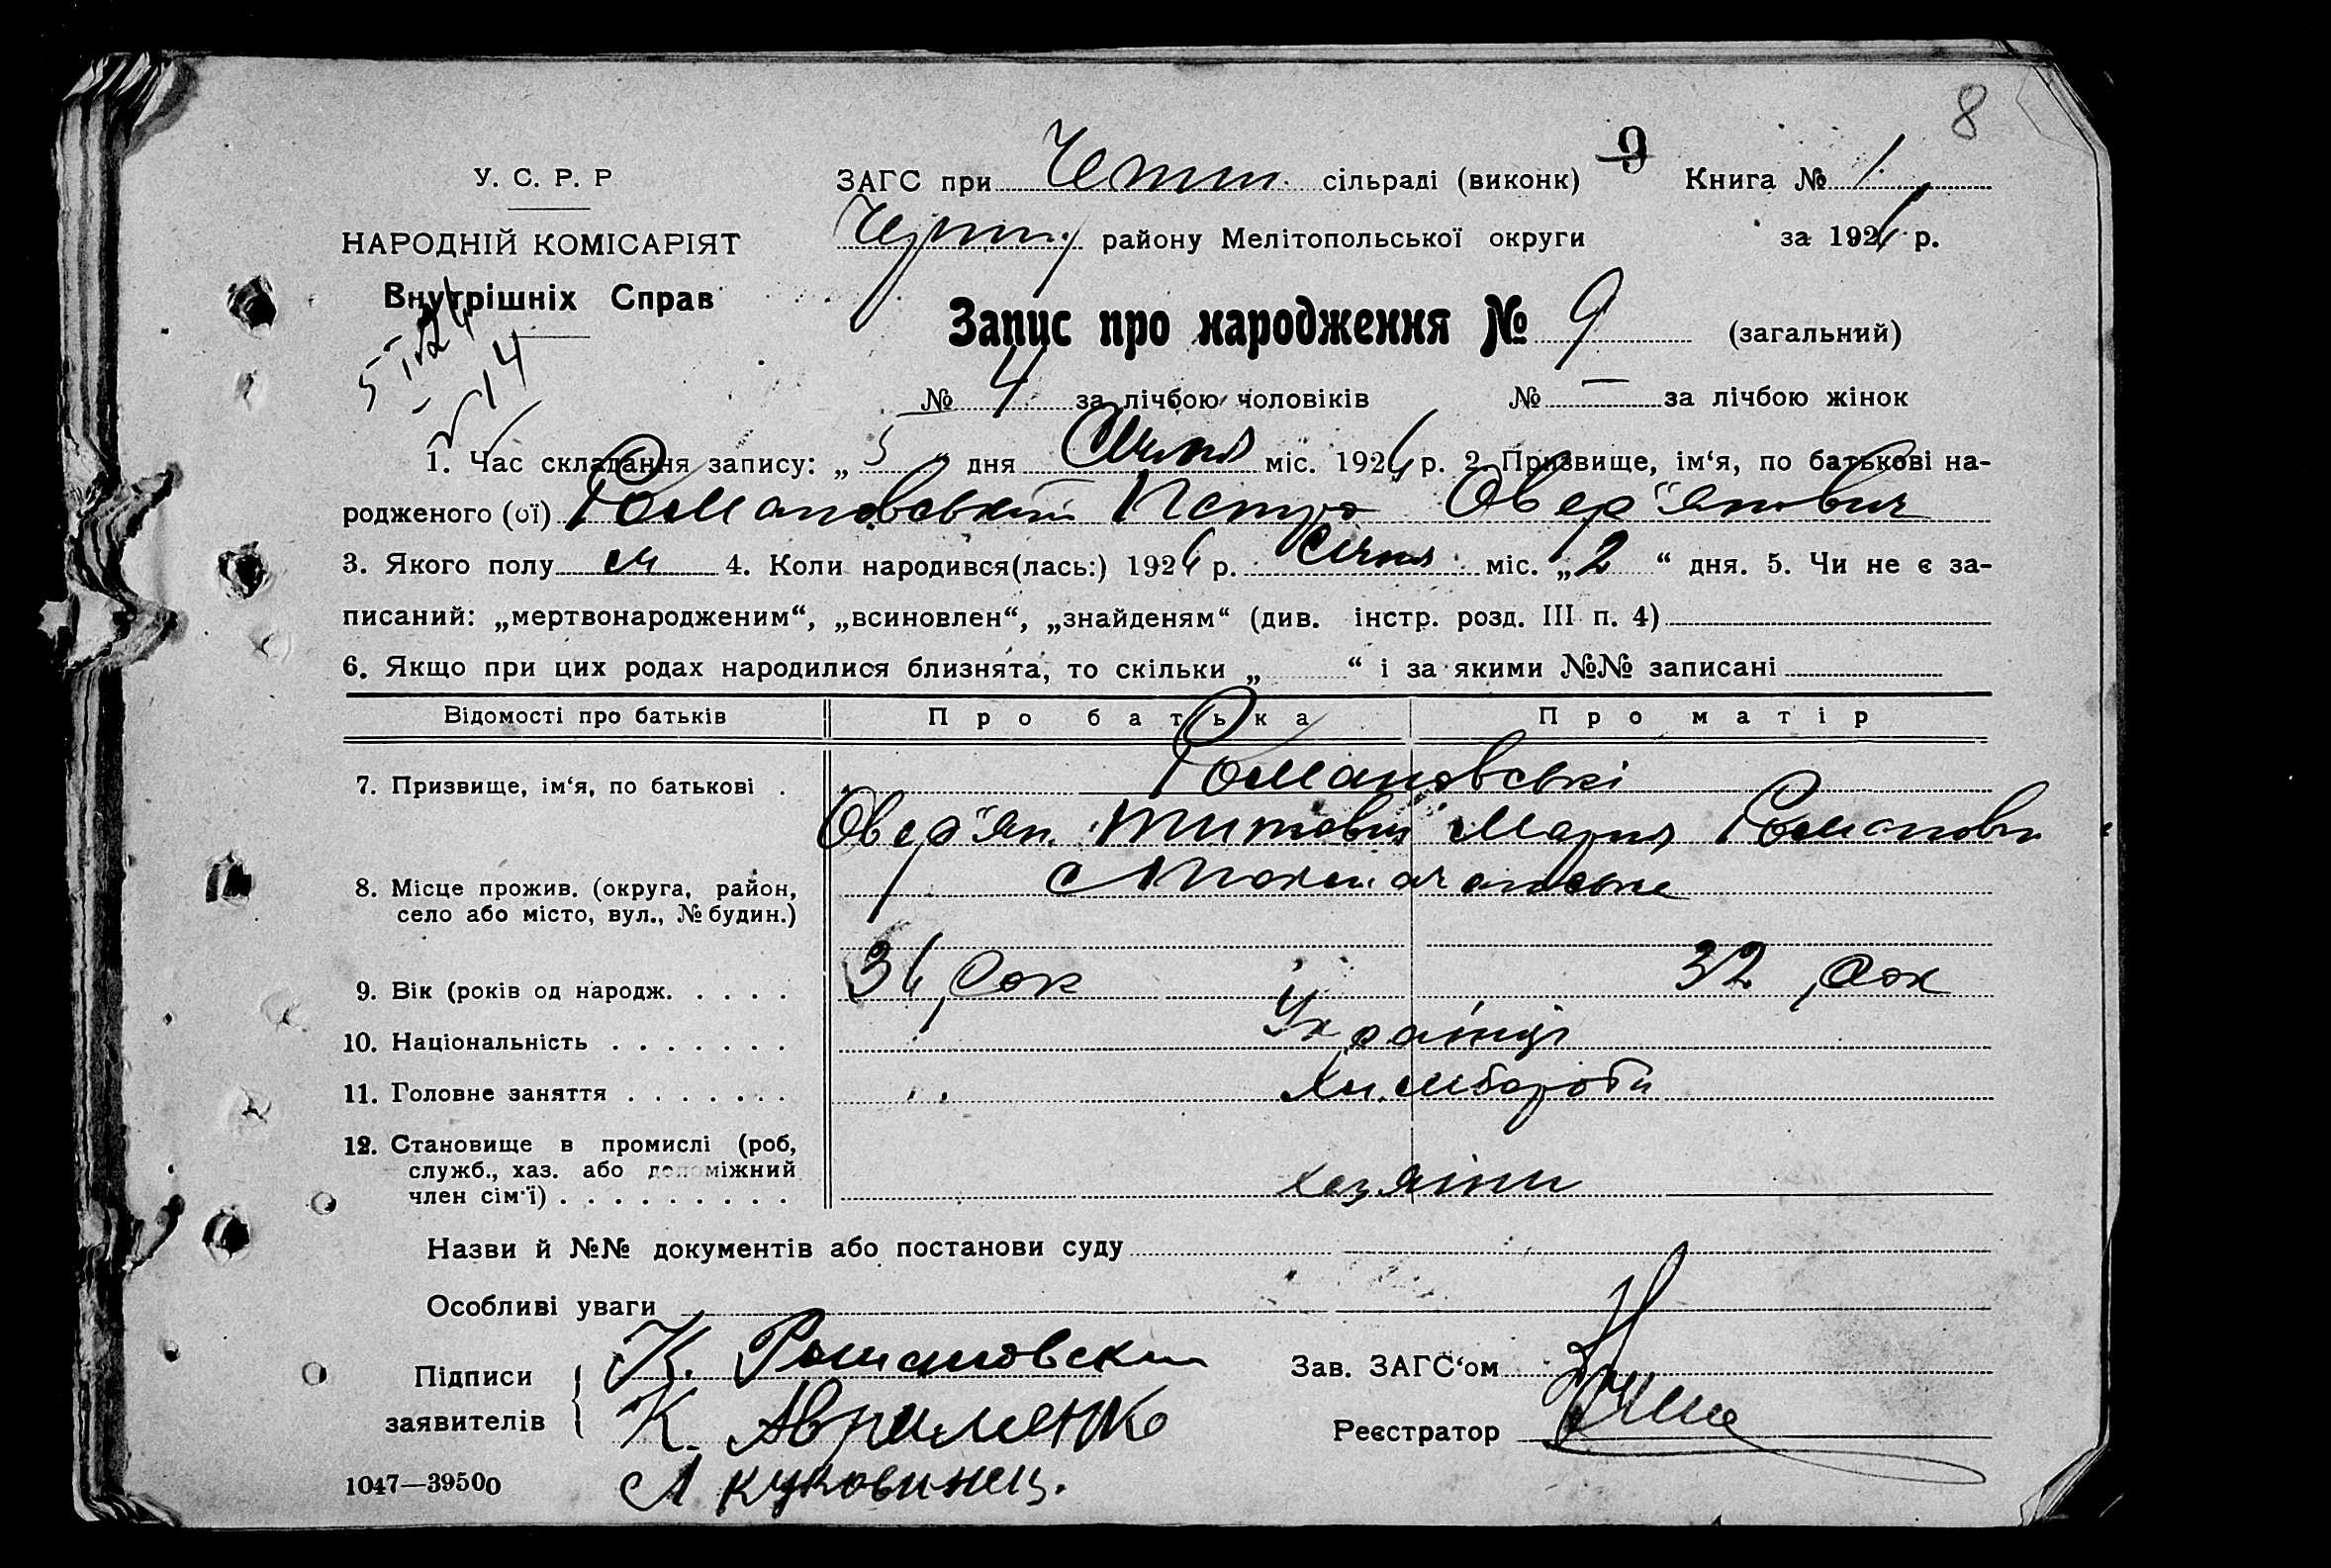 8
У. С. Р. Р
ЗАГС при сільраді (виконк) 9 Книга № 1
НАРОДНІЙ КОМІСАРІЯТ
району Мелітопольської округи за 192 р.
Внутрішніх Справ
Запис про народження № 9 (загальний)
№ 4 за лічбою чоловіків № — за лічбою жінок
1. Час складання запису: „ 5 “ дня Січня міс. 192 р. 2. Призвище, ім‘я, по батькові на-
родженого (ої) Романовський Петро Овер'янович
3. Якого полу м 4. Коли народився(лась:) 192 р. Січня міс. „ 2 “ дня. 5. Чи не є за-
писаний: „мертвонародженим“, „всиновлен“, „знайденям“ (див. інстр. розд. III п. 4)
6. Якщо при цих родах народилися близнята, то скільки „ “ і за якими №№ записані
Відомості про батьків Про батька Про матір
7. Призвище, ім‘я, по батькові . Романовські
Овер'ян Титович Мария Романовн
8. Місце прожив. (округа, район,
село або місто, вул., № будин.)
9. Вік (років од народж. . . . . рок 32 рок
10. Національність . . . . . . . Українці
11. Головне заняття . . . . . . .
12. Становище в промислі (роб,
служб., хаз. або допоміжний
член сім‘ї) . . . . . . . . . хазяіни
Назви й №№ документів або постанови суду
Особливі уваги
Підписи К. Романовски Зав. ЗАГС‘ом
заявителів К. Авраменко Реєстратор
1047—39500 А куковинец.